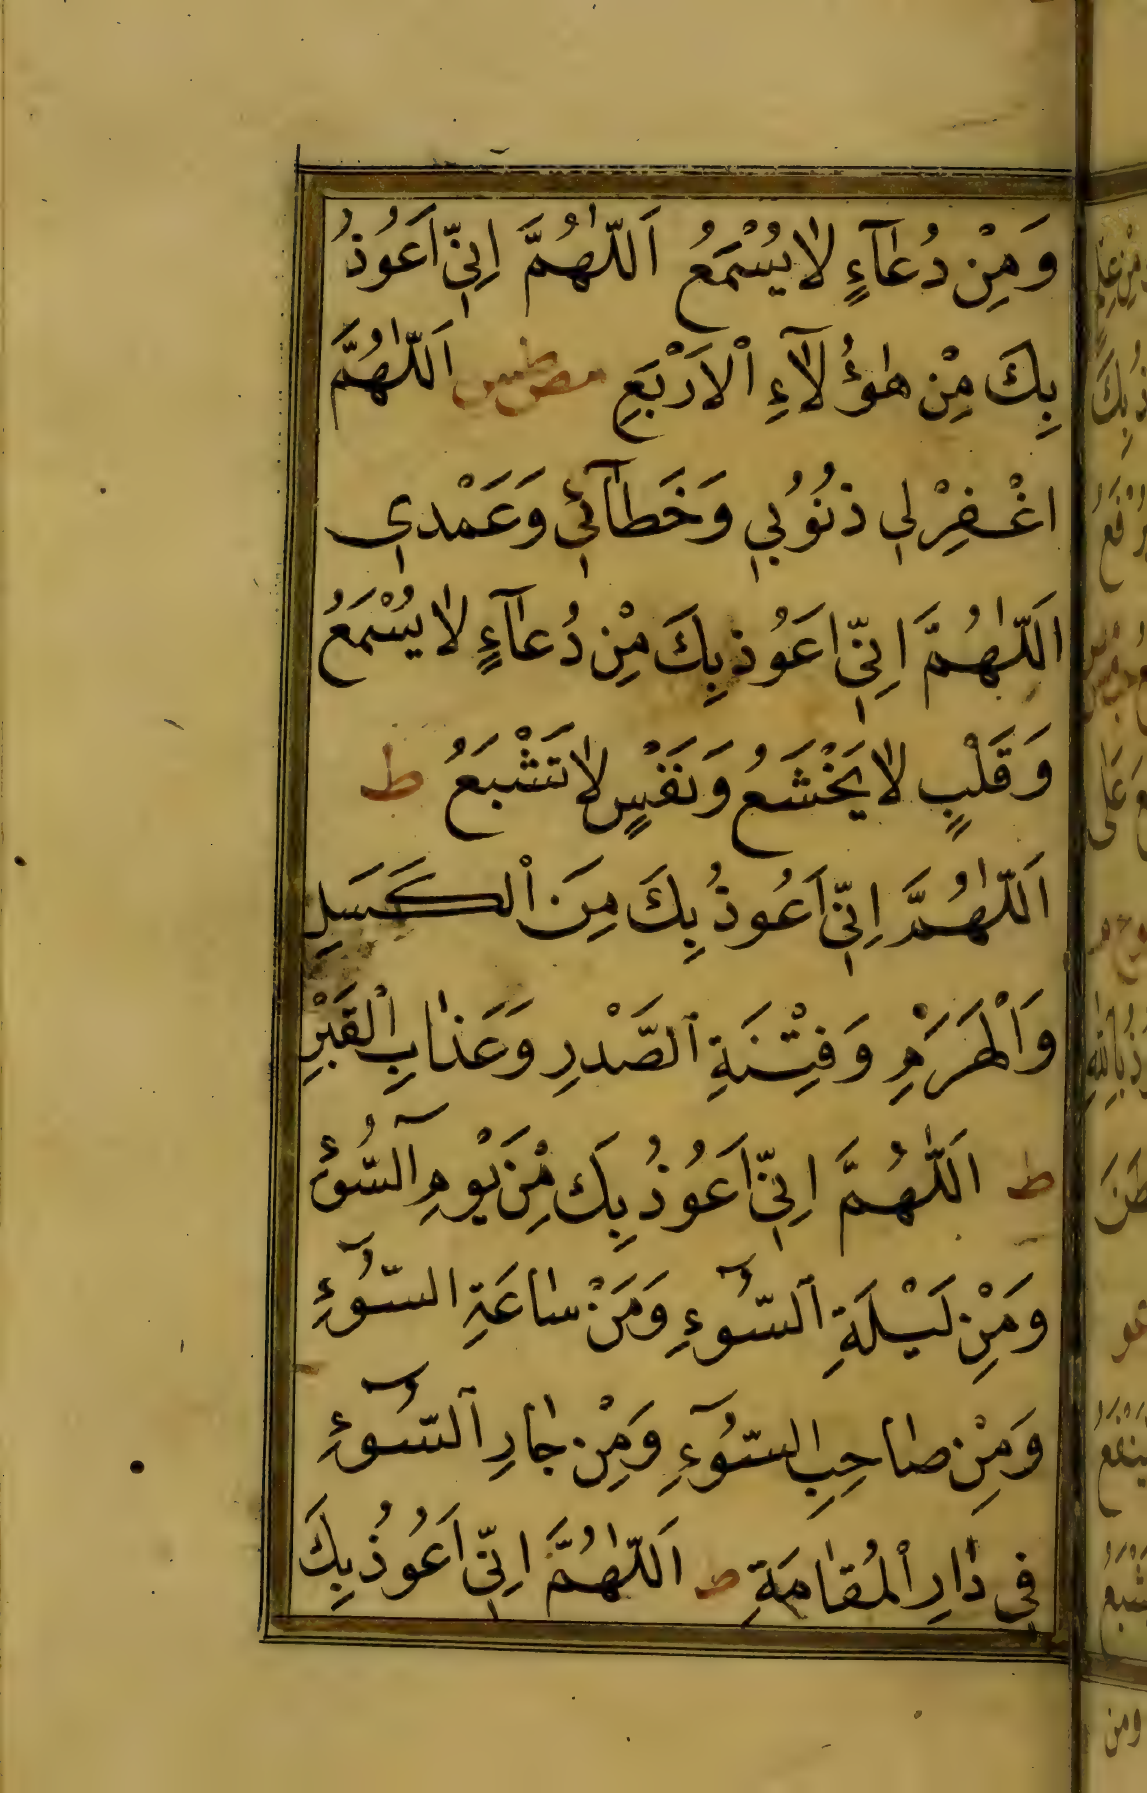 وَمِنْ دُعَآءٍ لَا يُسْمَعُ اَللّٰهُمَّ اِنِّي اَعُوذُ
بِكَ مِنْ هٰؤُلَآءِ الْاَرْبَعِ مص طس اَللّٰهُمَّ
اغْفِرْ لِي ذُنُوبِي وَخَطَائِي وَعَمْدِي
اَللّٰهُمَّ اِنِّي اَعُوذُ بِكَ مِنْ دُعَآءٍ لَا يُسْمَعُ
وَقَلْبٍ لَا يَخْشَعُ وَنَفْسٍ لَا تَشْبَعُ ط
اَللّٰهُمَّ اِنِّي اَعُوذُ بِكَ مِنَ الْكَسَلِ
وَالْهَرَمِ وَفِتْنَةِ الصَّدْرِ وَعَذَابِ الْقَبْرِ
ط اَللّٰهُمَّ اِنِّي اَعُوذُ بِكَ مِنْ يَوْمِ السُّوٓءِ
وَمِنْ لَيْلَةِ السُّوٓءِ وَمِنْ سَاعَةِ السُّوٓءِ
وَمِنْ صَاحِبِ السُّوٓءِ وَمِنْ جَارِ السُّوٓءِ
فِي دَارِ الْمُقَامَةِ ط اَللّٰهُمَّ اِنِّي اَعُوذُ بِكَ